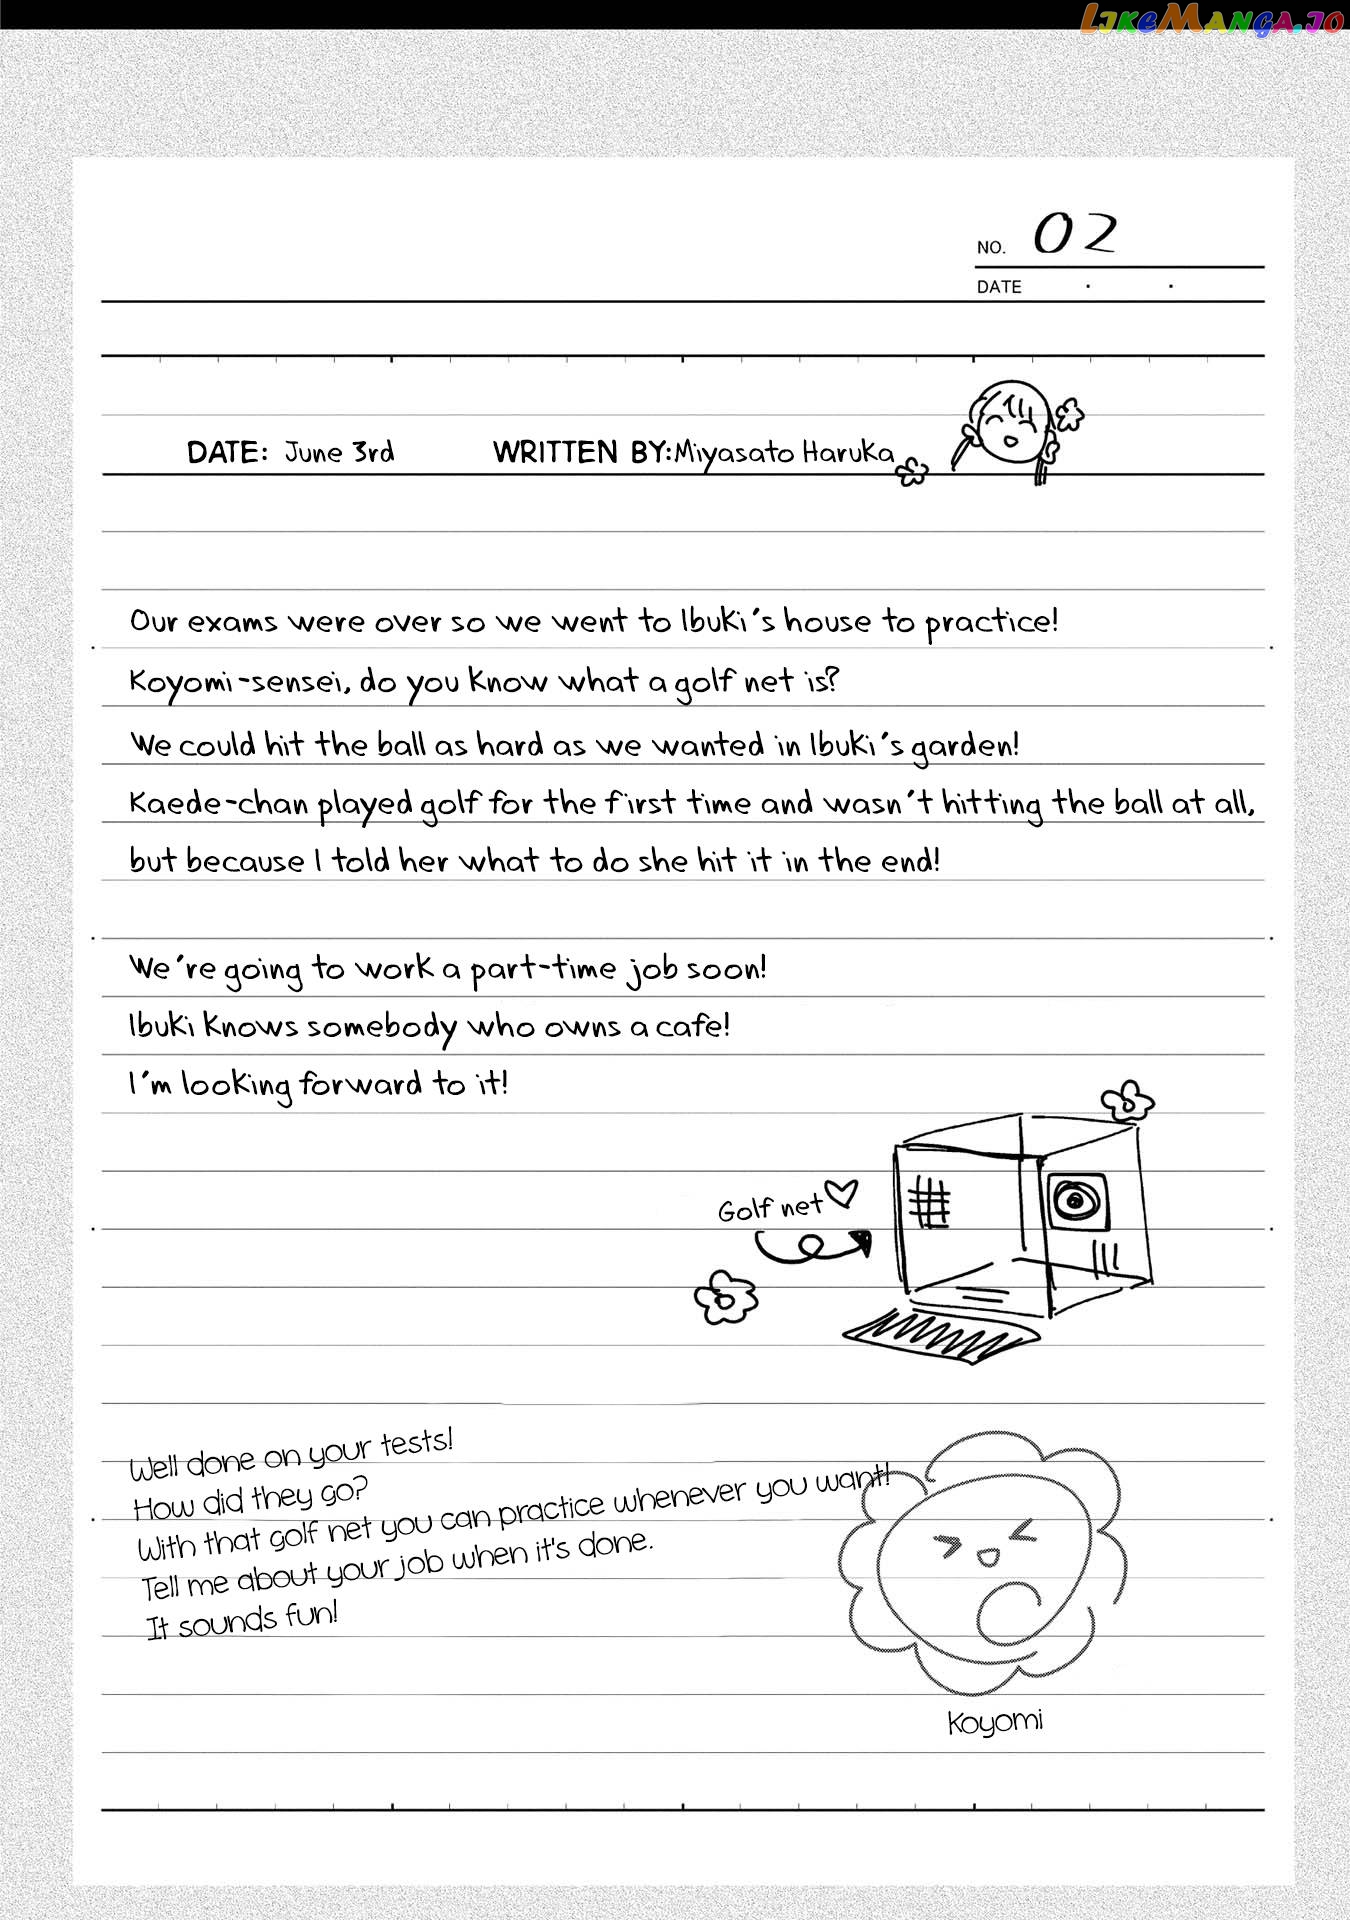 LIKEMANGA.IO
NO. 02
DATE
DATE: June 3rd WRITTEN BY: Miyasato Haruka
Our exams were over so we went to Ibuki's house to practice!
Koyomi-sensei, do you know what a golf net is?
We could hit the ball as hard as we wanted in Ibuki's garden!
Kaede-chan played golf for the first time and wasn't hitting the ball at all,
but because I told her what to do she hit it in the end!
We're going to work a part-time job soon!
Ibuki knows somebody who owns a cafe!
I'm looking forward to it!
Golf net
Well done on your tests!
How did they go?
With that golf net you can practice whenever you want!
Tell me about your job when it's done.
It sounds fun!
Koyomi